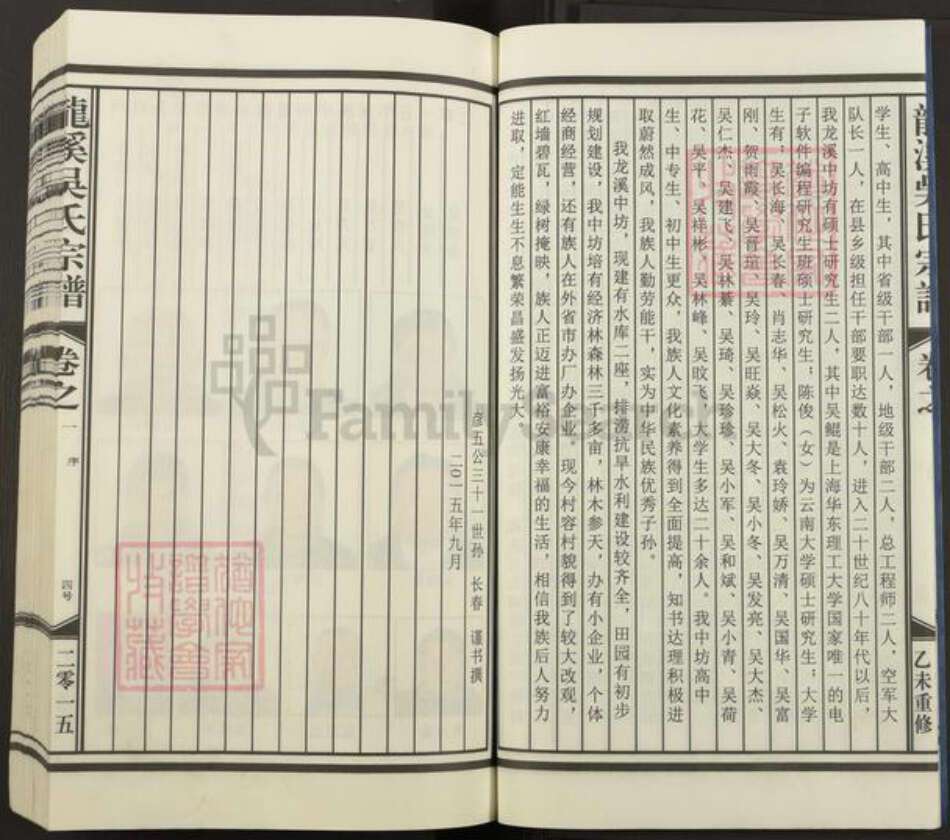 龍溪吳氏宗譜
卷之
乙未重修
学生、高中生，其中省级干部一人，地级干部二人，总工程师二人，空军大
队长一人，在县乡级担任干部要职达数十人，进入二十世纪八十年代以后，
我龙溪中坊有硕士研究生二人，其中吴鲲是上海华东理工大学国家唯一的电
子软件编程研究生班硕士研究生；陈俊（女）为云南大学硕士研究生；大学
生有：吴长海、吴长春、肖志华、吴松火、袁玲娇、吴万清、吴国华、吴富
刚、贺雨霞、吴晋瑄、吴玲、吴旺焱、吴大冬、吴小冬、吴发亮、吴大杰、
吴仁杰、吴建飞、吴林纂、吴琦、吴珍珍、吴小军、吴和斌、吴小青、吴荷
花、吴平、吴祥彬、吴林峰、吴旼飞，大学生多达二十余人。我中坊高中
生、中专生、初中生更众，我族人文化素养得到全面提高，知书达理积极进
取蔚然成风，我族人勤劳能干，实为中华民族优秀子孙。
我龙溪中坊，现建有水库二座，排涝抗旱水利建设较齐全，田园有初步
规划建设，我中坊培有经济林森林三千多亩，林木参天，办有小企业，个体
经商经营，还有族人在外省市办厂办企业。现今村容村貌得到了较大改观，
红墙碧瓦，绿树掩映，族人正迈进富裕安康幸福的生活，相信我族后人努力
进取，定能生生不息繁荣昌盛发扬光大。
彦五公三十一世孙 长春 谨书撰
二〇一五年九月
龍溪吳氏宗譜
卷之一
序
四号
二零一五
FamilySearch